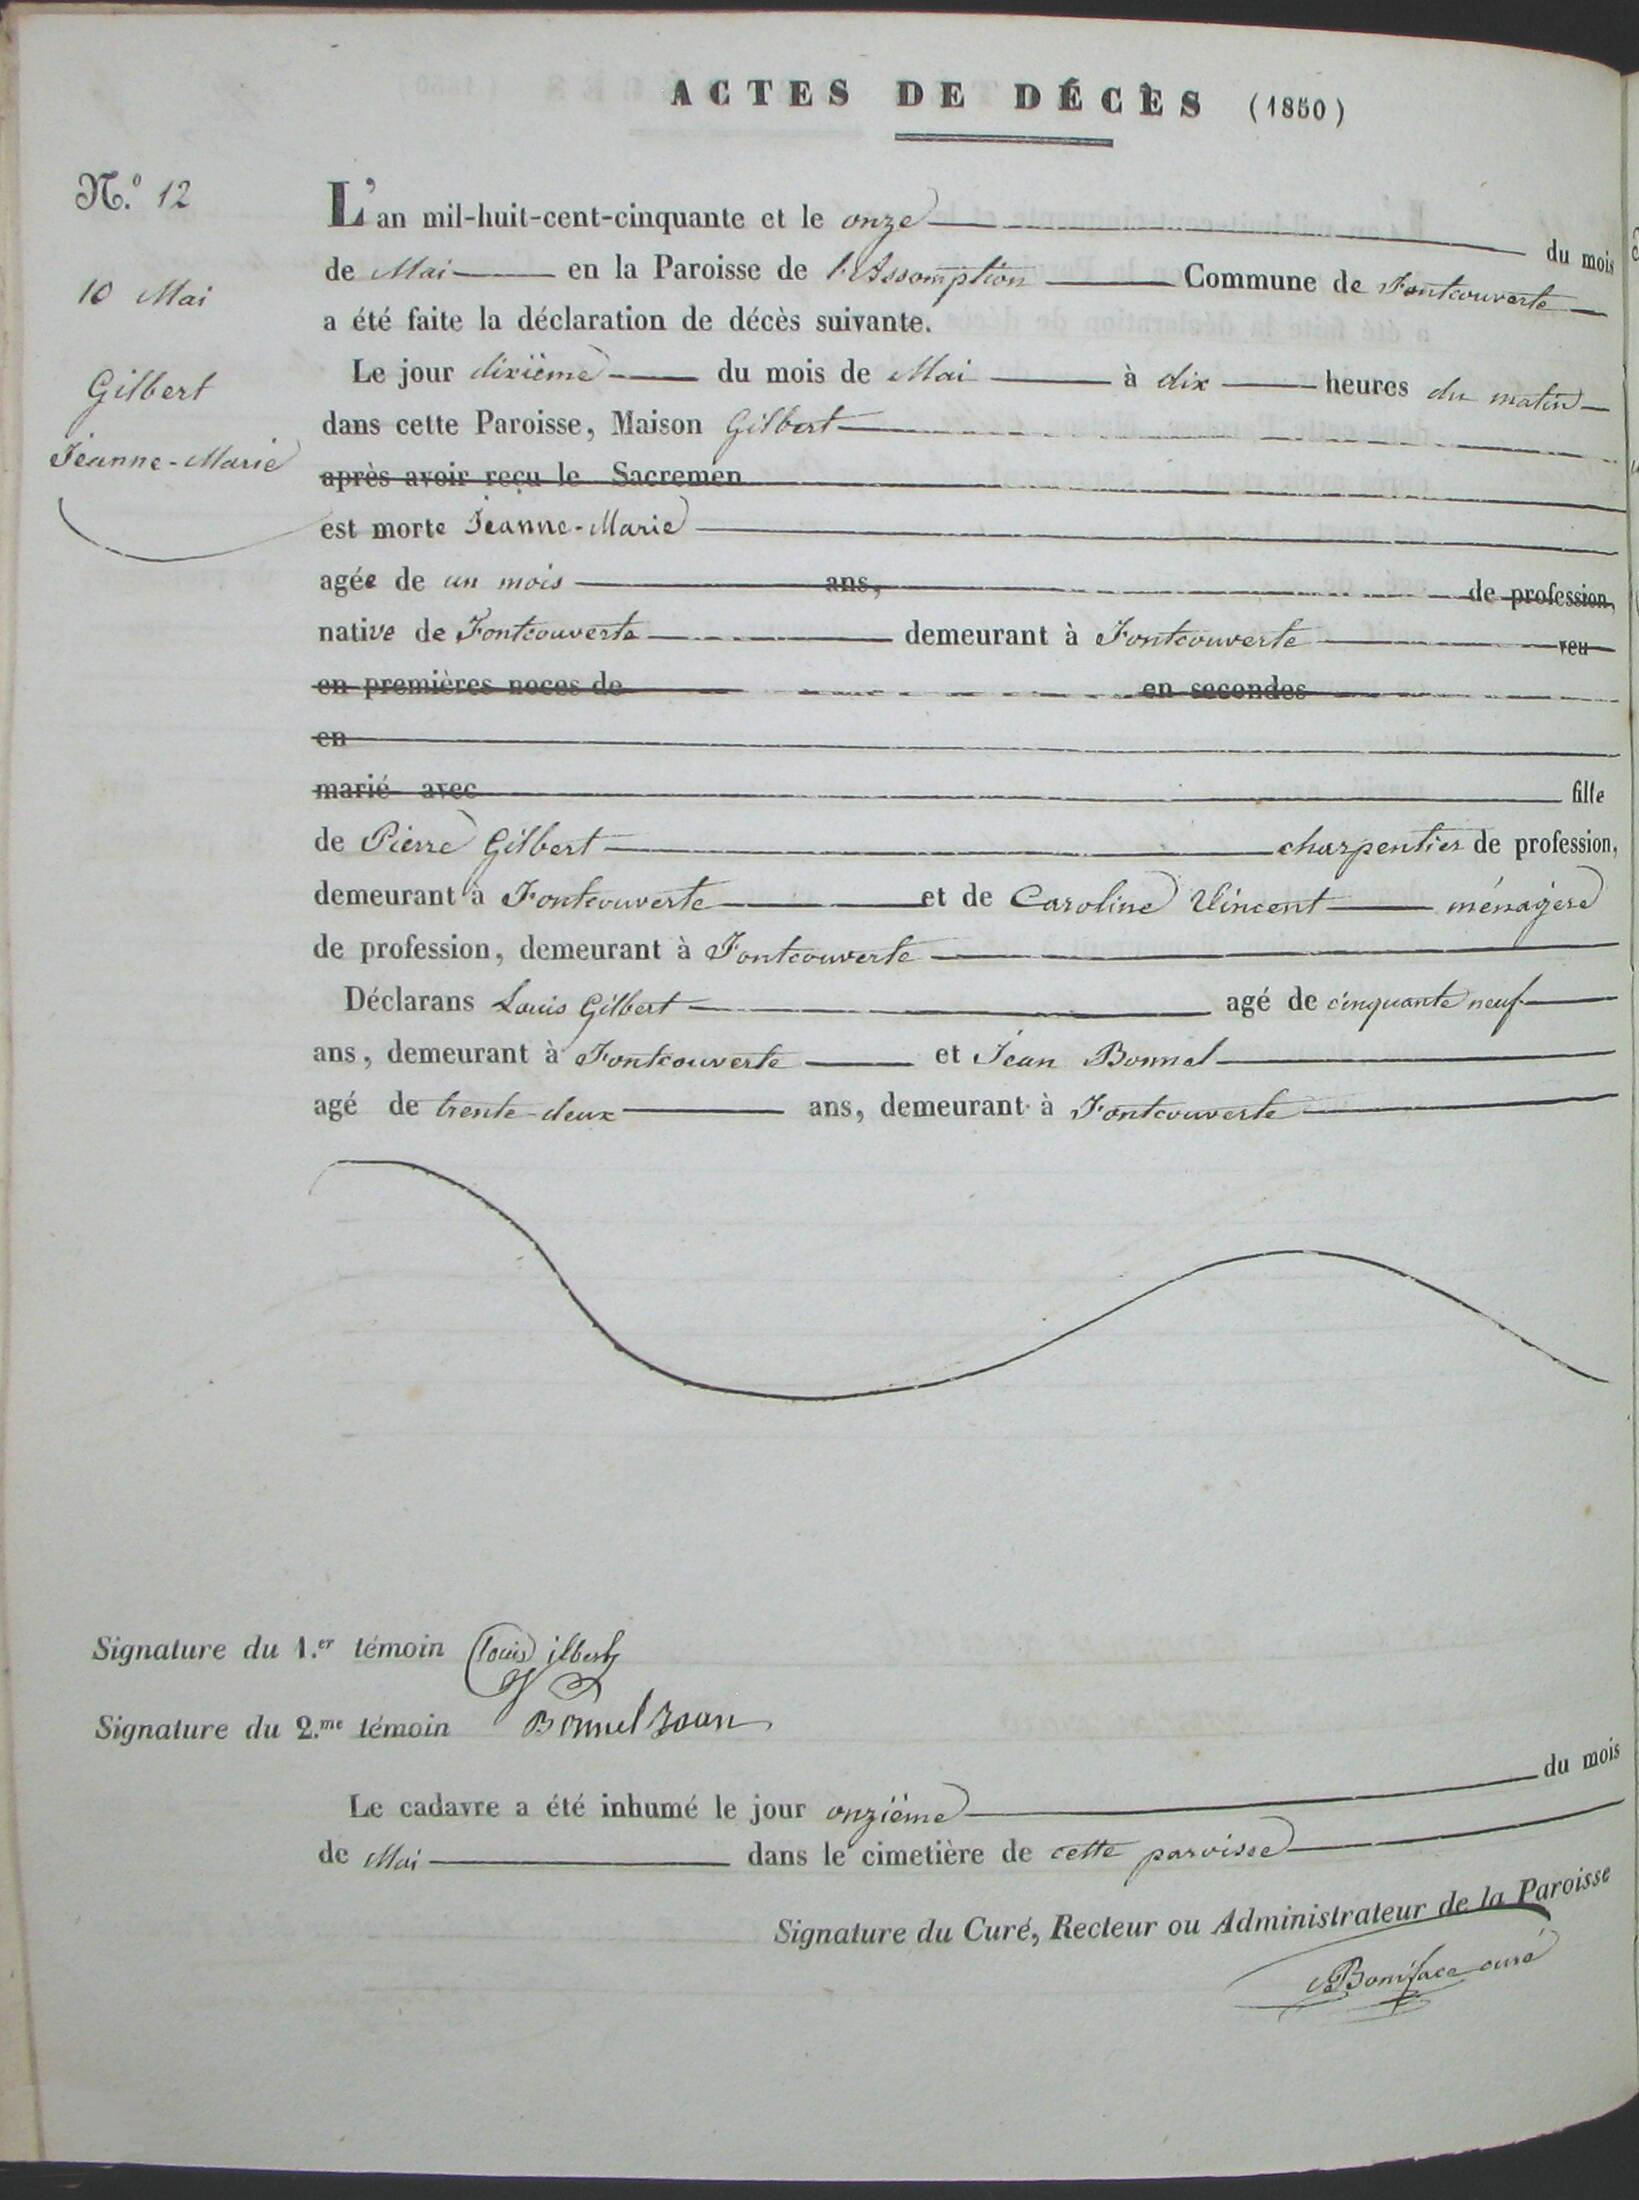 ACTES DE DÉCÈS (1850)
N.o 12
10 Mai
Gilbert
Jeanne-Marie
L'an mil-huit-cent-cinquante et le onze du mois
de Mai en la Paroisse de l'Assomption Commune de Fontcouverte
a été faite la déclaration de décès suivante.
Le jour dixième du mois de Mai à dix heures du matin
dans cette Paroisse, Maison Gilbert
après avoir reçu le Sacremen
est morte Jeanne-Marie
agée de un mois ans, de profession,
native de Fontcouverte demeurant à Fontcouverte veu
en premières noces de en secondes
en
marié avec fille
de Pierre Gilbert charpentier de profession,
demeurant à Fontcouverte et de Caroline Vincent ménagère
de profession, demeurant à Fontcouverte
Déclarans Louis Gilbert agé de cinquante neuf
ans, demeurant à Fontcouverte et Jean Bonnel
agé de trente-deux ans, demeurant à Fontcouverte
Signature du 1.er témoin louis gilbert
Signature du 2.me témoin Bonnel Jean
Le cadavre a été inhumé le jour onzième du mois
de Mai dans le cimetière de cette paroisse
Signature du Curé, Recteur ou Administrateur de la Paroisse
Boniface curé